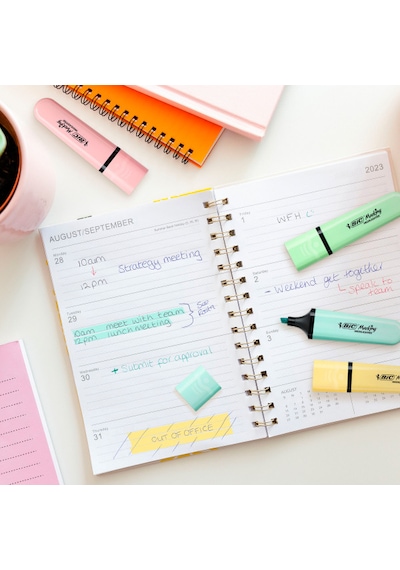 AUGUST/SEPTEMBER
Monday
28
10am
Strategy meeting
12pm
Tuesday
29
10am meet with team
12pm lunch meeting
Wednesday
30
+ Submit for approval
Thursday
31
OUT OF OFFICE
2023
Friday
1
WFH
Saturday
2
- Weekend get together
speak to team
Sunday
3
AUGUST
BIC Marking
BIC Marking
BIC Marking
BIC Marking